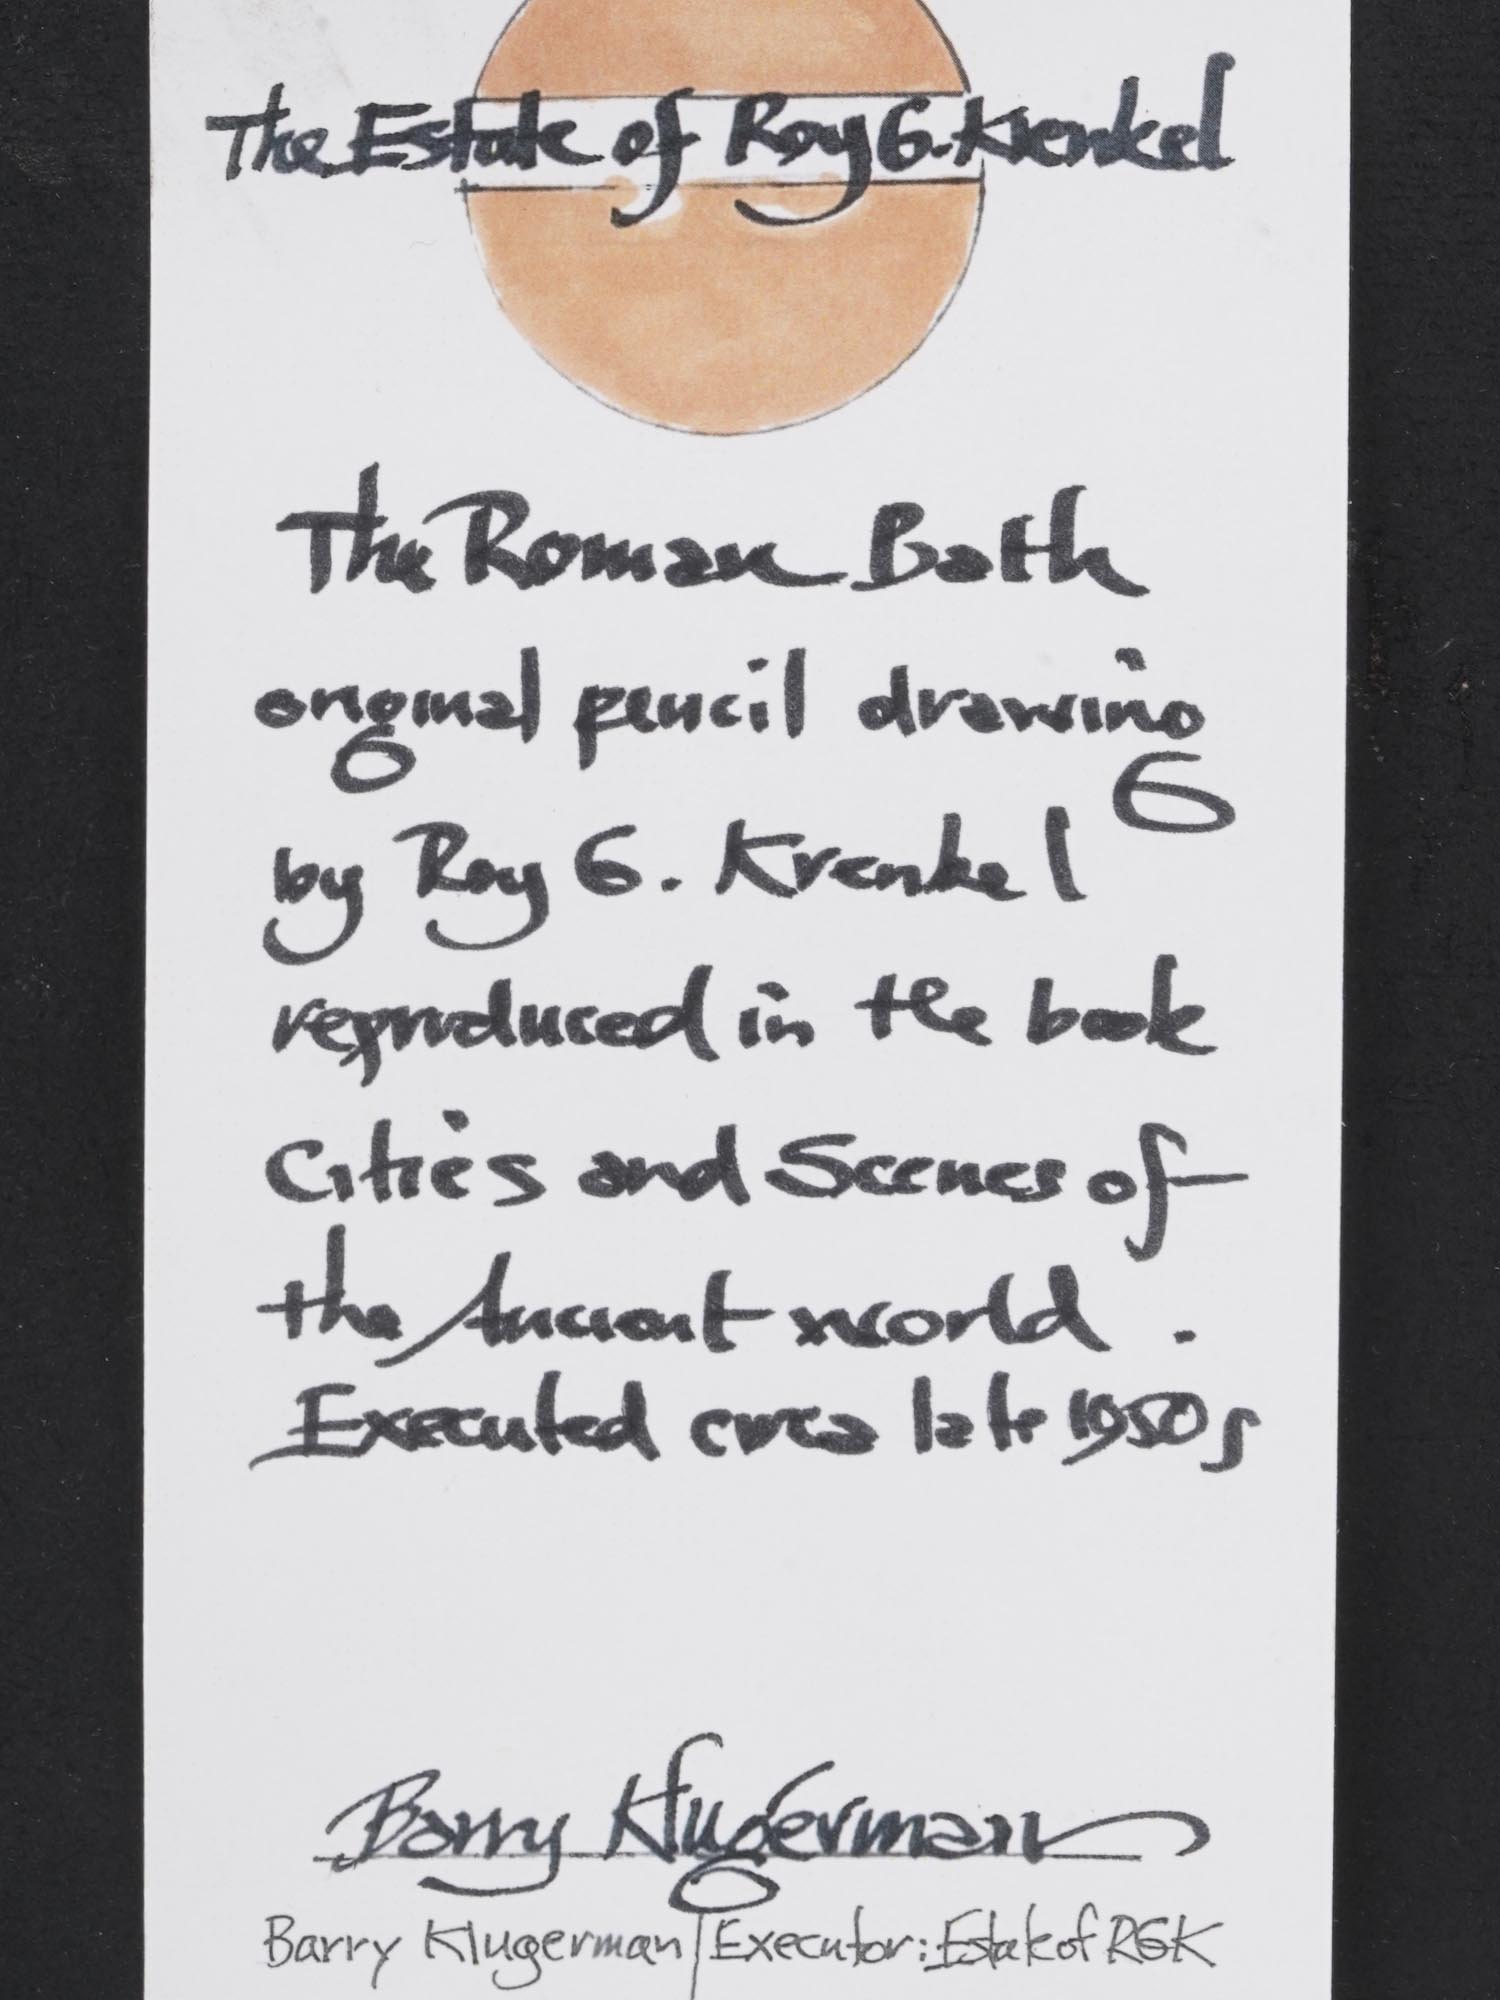 The Estate of Roy G. Krenkel
The Roman Bath
original pencil drawing
by Roy G. Krenkel
reproduced in the book
Cities and Scenes of
the Ancient World.
Executed circa late 1950s
Barry Klugerman
Barry Klugerman | Executor: Estate of RGK